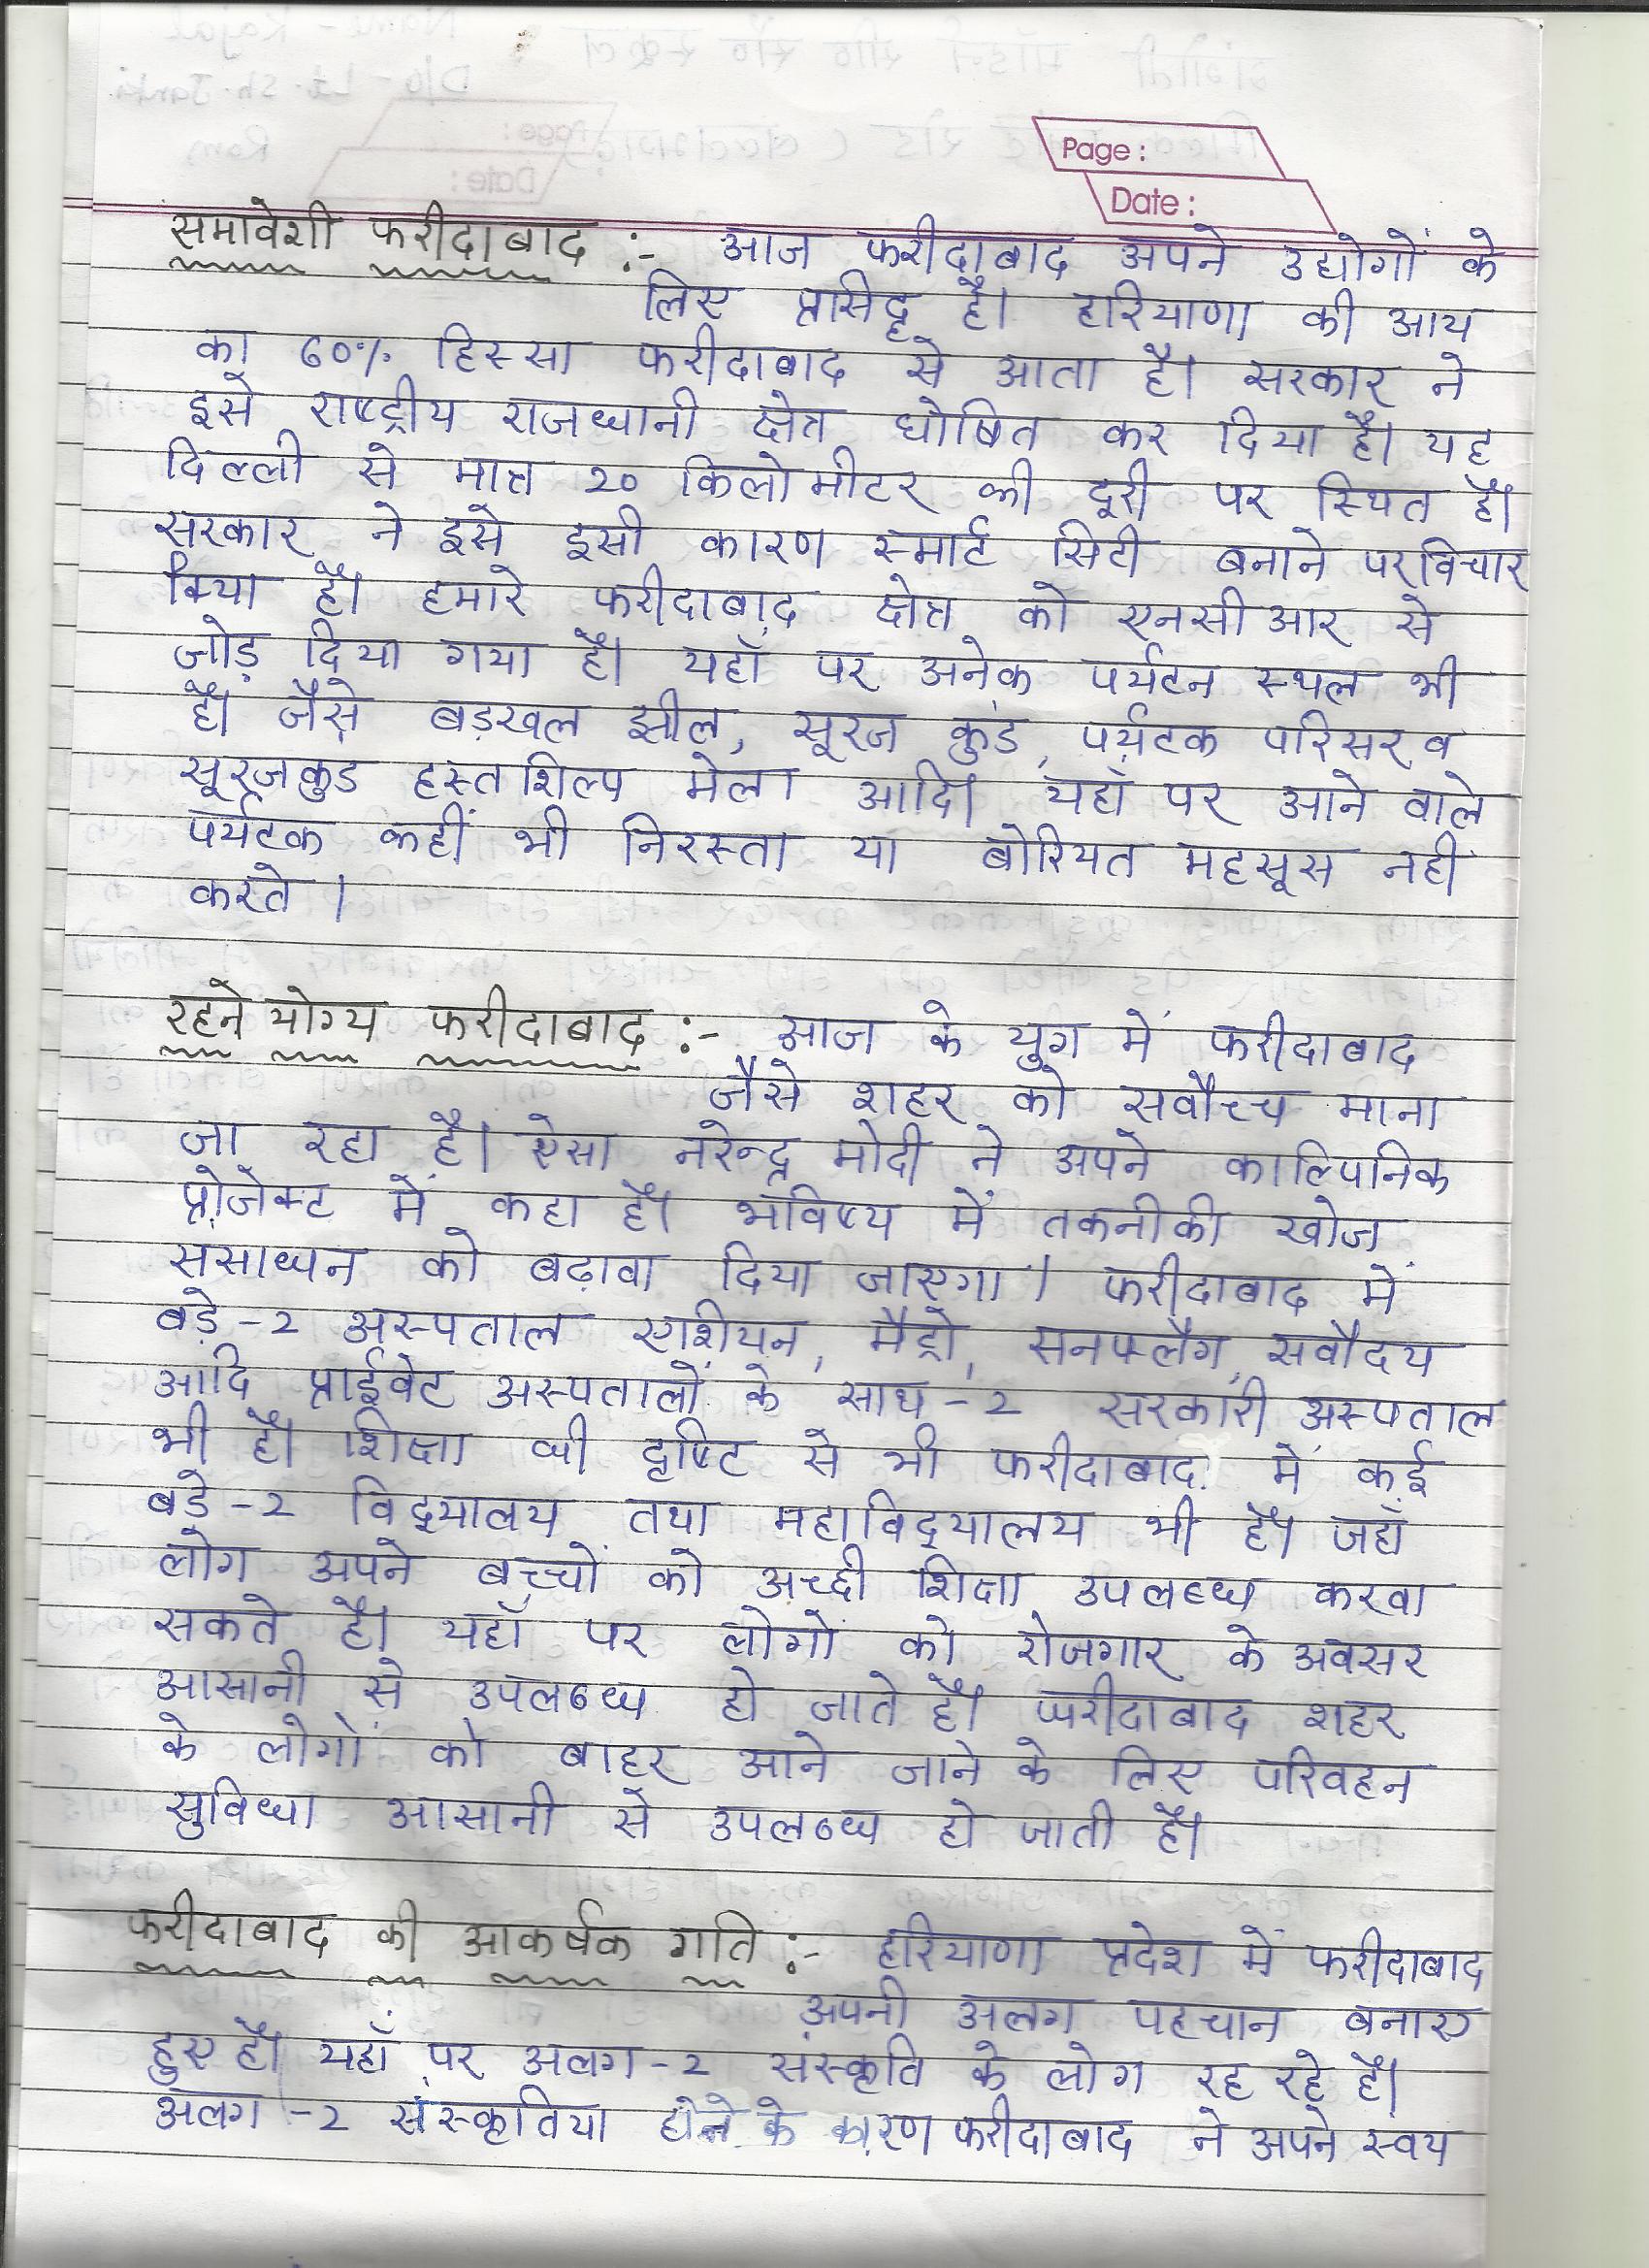 Page :
Date :
समावेशी फरीदाबाद :- आज फरीदाबाद अपने उद्योगों के
लिए प्रसिद्ध है। हरियाणा की आय
का 60% हिस्सा फरीदाबाद से आता है। सरकार ने
इसे राष्ट्रीय राजधानी क्षेत्र घोषित कर दिया है। यह
दिल्ली से मात्र 20 किलोमीटर की दूरी पर स्थित है।
सरकार ने इसे इसी कारण स्मार्ट सिटी बनाने पर विचार
किया है। हमारे फरीदाबाद क्षेत्र को एनसीआर से
जोड़ दिया गया है। यहाँ पर अनेक पर्यटन स्थल भी
है। जैसे बड़खल झील, सूरज कुंड, पर्यटक परिसर व
सूरजकुंड हस्तशिल्प मेला आदि। यहाँ पर आने वाले
पर्यटक कहीं भी निरस्ता या बोरियत महसूस नही
करते ।
रहने योग्य फरीदाबाद :- आज के युग में फरीदाबाद
जैसे शहर को सर्वोच्च माना
जा रहा है। ऐसा नरेन्द्र मोदी ने अपने काल्पिनिक
प्रोजेक्ट में कहा है। भविष्य में तकनीकी खोज
संसाधन को बढ़ावा दिया जाएगा । फरीदाबाद में
बड़े-2 अस्पताल एशियन, मैट्रो, सनफ्लैग, सर्वोदय
आदि प्राईवेट अस्पतालों के साथ-2 सरकारी अस्पताल
भी है। शिक्षा की दृष्टि से भी फरीदाबाद में कई
बडे-2 विद्यालय तथा महाविद्यालय भी है। जहाँ
लोग अपने बच्चों को अच्छी शिक्षा उपलब्ध करवा
सकते है। यहाँ पर लोगों को रोजगार के अवसर
आसानी से उपलब्ध हो जाते है। फरीदाबाद शहर
के लोगों को बाहर आने जाने के लिए परिवहन
सुविधा आसानी से उपलब्ध हो जाती है।
फरीदाबाद की आकर्षक गति :- हरियाणा प्रदेश में फरीदाबाद
अपनी अलग पहचान बनाए
हुए है। यहाँ पर अलग-2 संस्कृति के लोग रह रहे है।
अलग-2 संस्कृतिया होने के कारण फरीदाबाद ने अपने स्वय